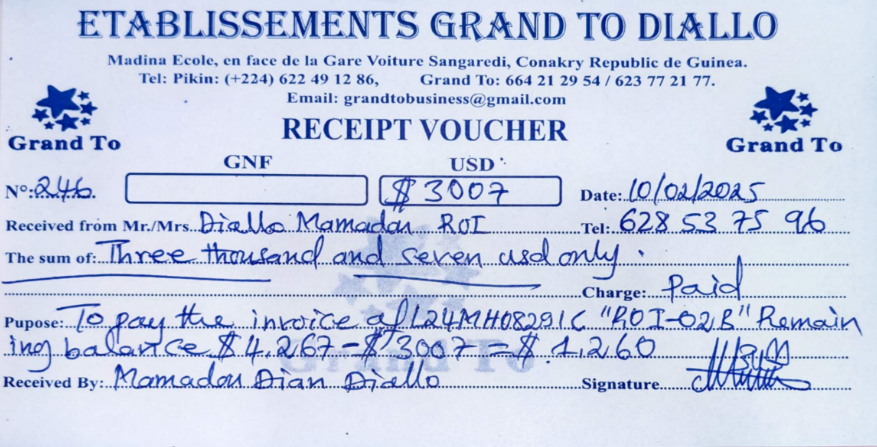 ETABLISSEMENTS GRAND TO DIALLO
Madina Ecole, en face de la Gare Voiture Sangaredi, Conakry Republic de Guinea.
Tel: Pikin: (+224) 622 49 12 86, Grand To: 664 21 29 54 / 623 77 21 77.
Email: grandtobusiness@gmail.com
Grand To RECEIPT VOUCHER Grand To
GNF USD
N°: 246. $ 3007 Date: 10/02/2025
Received from Mr./Mrs. Diallo Mamadou ROI Tel: 628 53 75 96
The sum of: Three thousand and seven usd only.
Charge: Paid
Pupose: To pay the invoice of L24MH08291C "ROI-02B" Remain
ing balance $ 4,267 - $ 3007 = $ 1,260
Received By: Mamadou Dian Diallo Signature